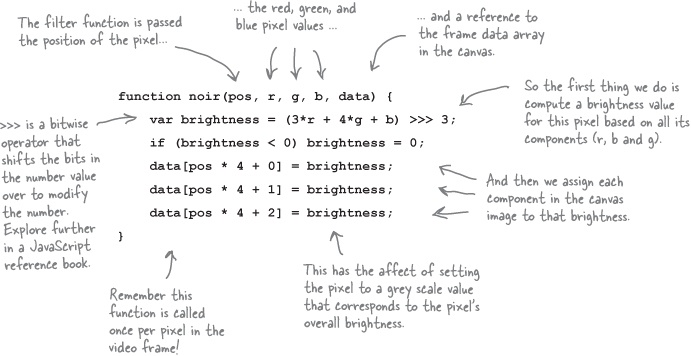 The filter function is passed
the position of the pixel...
... the red, green, and
blue pixel values ...
... and a reference to
the frame data array
in the canvas.
function noir(pos, r, g, b, data) {
var brightness = (3*r + 4*g + b) >>> 3;
if (brightness < 0) brightness = 0;
data[pos * 4 + 0] = brightness;
data[pos * 4 + 1] = brightness;
data[pos * 4 + 2] = brightness;
}
>>> is a bitwise
operator that
shifts the bits in
the number value
over to modify
the number.
Explore further
in a JavaScript
reference book.
So the first thing we do is
compute a brightness value
for this pixel based on all its
components (r, b and g).
And then we assign each
component in the canvas
image to that brightness.
Remember this
function is called
once per pixel in the
video frame!
This has the affect of setting
the pixel to a grey scale value
that corresponds to the pixel's
overall brightness.